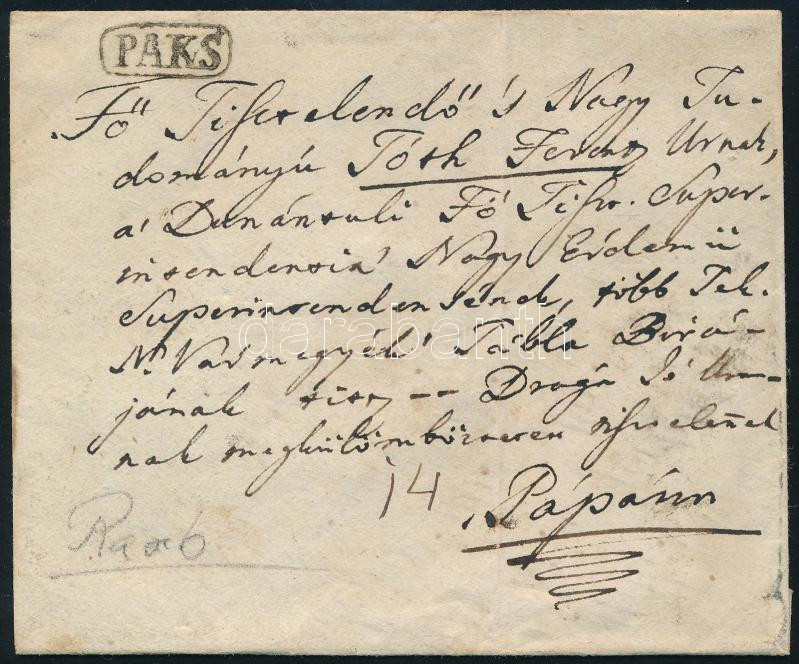 PAKS
Fő Tisztelendő 's Nagy Tu-
dományú Tóth Ferentz Urnak,
a' Dunántuli Fő Tiszt. Super-
intendentzia' Nagy Érdemű
Superintendensének, több Tek.
Ns. Vármegyék' Tábla Birá-
jának
Drága Jó Ur-
nak megkülömböztetett tisztelettel
14
Pápánn
darabanth